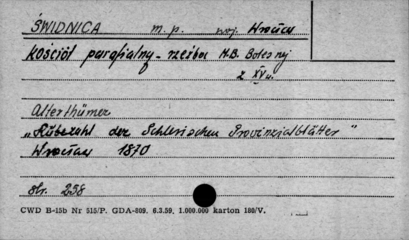 ŚWIDNICA m. p. woj. Wrocław
Kościół parafialny - rzeźba M.B. Bolesnej
z XV w.
Alterthümer
"Rübezahl der Schlesischen Provinzialblätter"
Wrocław 1870
str. 258
CWD B-15b Nr 515/P. GDA-809. 6.3.59. 1.000.000 karton 180/V.